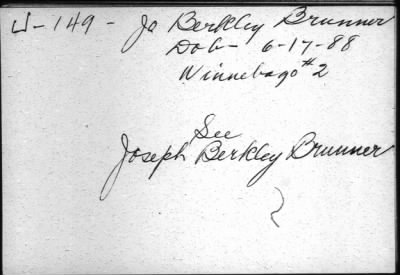 W-149 - Jo Berkley Brunner
Dob- 6-17-88
Winnebago #2
See
Joseph Berkley Brunner